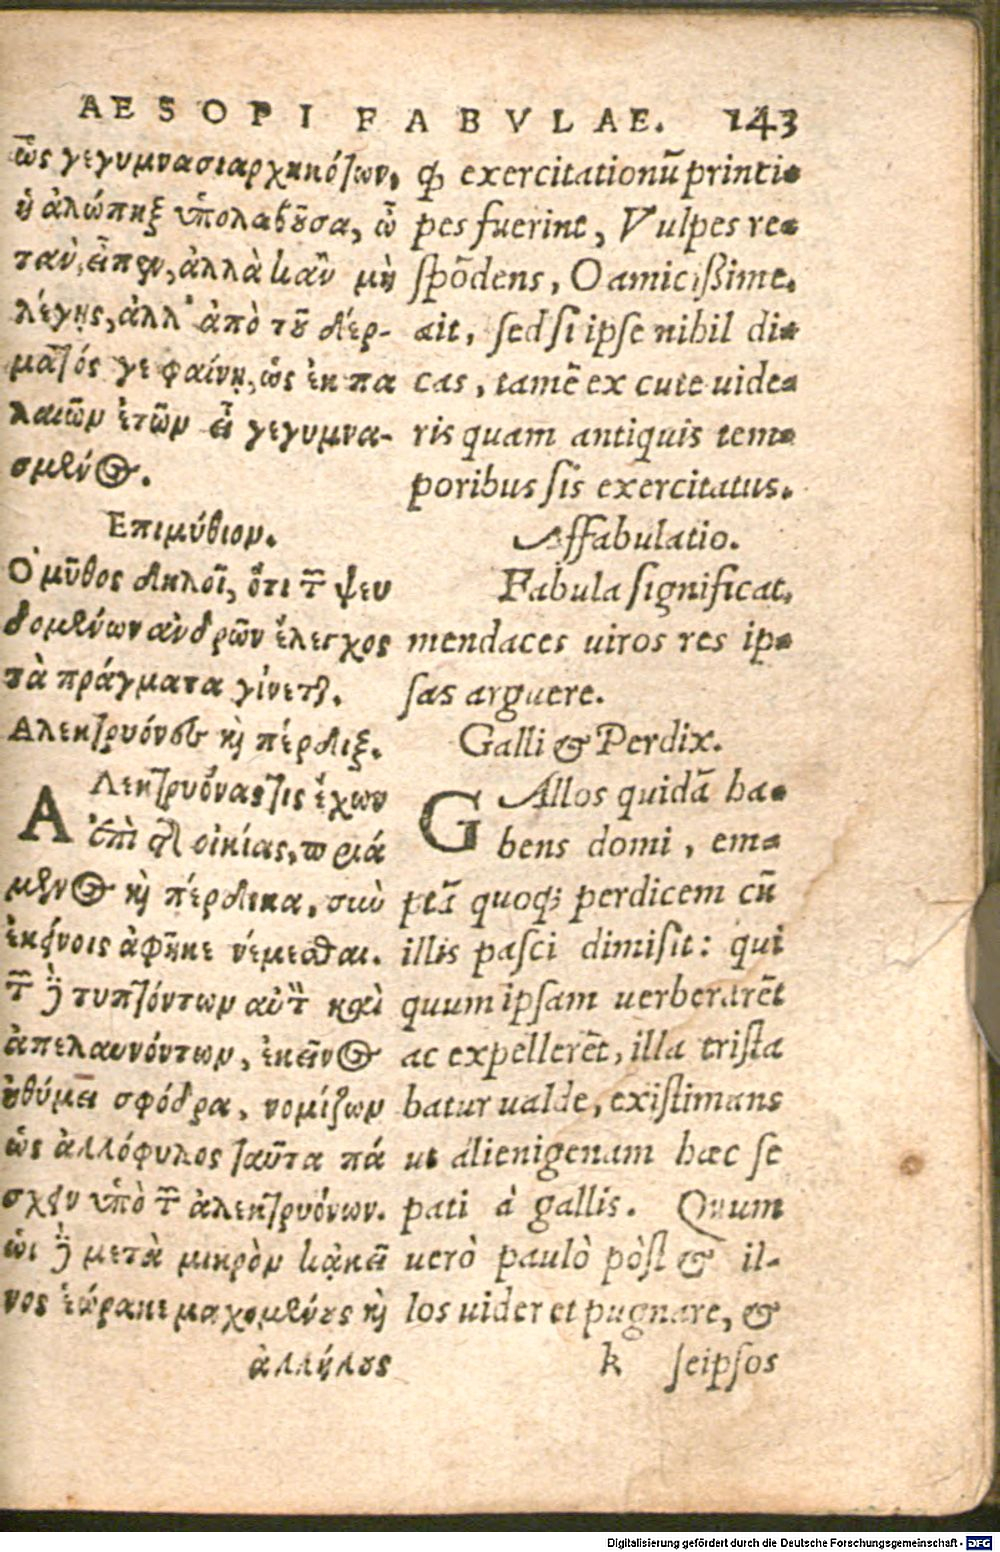 AESOPI FABVLAE. 143
ὡς γεγυμνασιαρχηκότων,
ἡ ἀλώπηξ ὑπολαβοῦσα, ὦ
τᾶν, εἶπεν, ἀλλὰ κᾂν μὴ
λέγῃς, ἀλλ' ἀπὸ τοῦ δέρ-
ματός γε φαίνῃ, ὡς ἐκ πα
λαιῶν ἐτῶν εἶ γεγυμνα-
σμένος.
Επιμύθιον.
Ο μῦθος δηλοῖ, ὅτι τῶν ψευ
δομένων ἀνδρῶν ἔλεγχος
τὰ πράγματα γίνεται.
Αλεκτρυόνες καὶ πέρδιξ.
ΑΛεκτρυόνας τις ἔχων
ἐπὶ τῆς οἰκίας, πριά
μενος καὶ πέρδικα, σὺν
ἐκείνοις ἀφῆκε νέμεσθαι.
τῶν δὲ τυπτόντων αὐτὸν καὶ
ἀπελαυνόντων, ἐκεῖνος
ἠθύμει σφόδρα, νομίζων
ὡς ἀλλόφυλος ταῦτα πά
σχειν ὑπὸ τῶν ἀλεκτρυόνων.
ὡς δὲ μετὰ μικρὸν κᾀκεί
νους ἑώρακε μαχομένους καὶ
ἀλλήλους
ꝙ exercitationũ princi-
pes fuerint, Vulpes re-
ſpõdens, O amicißime,
ait, ſed ſi ipſe nihil di-
cas, tamẽ ex cute uide-
ris quam antiquis tem-
poribus ſis exercitatus.
Affabulatio.
Fabula ſignificat,
mendaces uiros res ip-
ſas arguere.
Galli & Perdix.
GAllos quidã ha-
bens domi, em-
ptã quoq; perdicem cũ
illis paſci dimiſit: qui
quum ipſam uerberarẽt
ac expellerẽt, illa triſta
batur ualde, exiſtimans
ut alienigenam hæc ſe
pati à gallis. Quum
uerò paulò pòſt & il-
los uideret pugnare, &
k ſeipſos
Digitalisierung gefördert durch die Deutsche Forschungsgemeinschaft - DFG